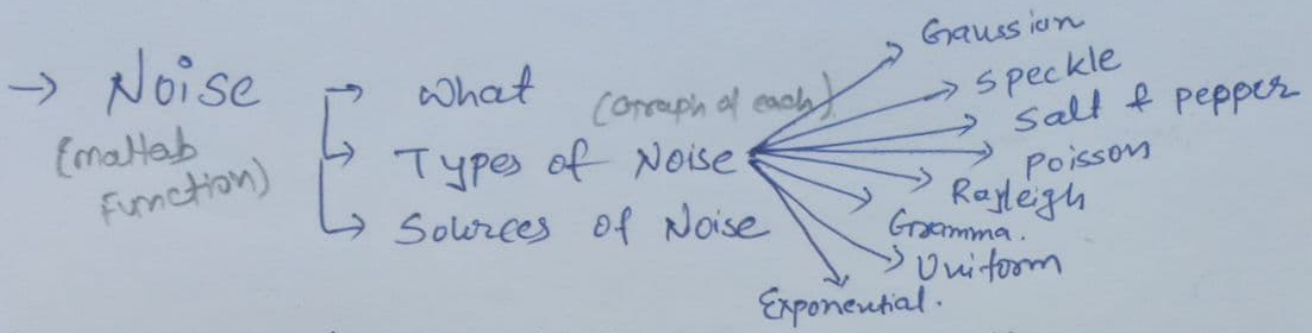 → Noise → What
(matlab Function)
(Graph of each)
→ Types of Noise
→ Sources of Noise
Gaussian
Speckle
Salt & pepper
Poisson
Rayleigh
Gamma.
Uniform
Exponential.